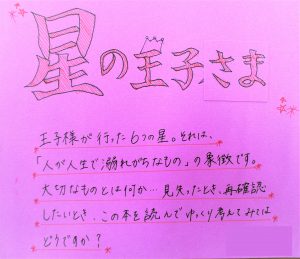 星の王子さま
王子様が行った6つの星。それは、
「人が人生で溺れがちなもの」の象徴です。
大切なものとは何か…見失ったとき、再確認
したいとき、この本を読んでゆっくり考えてみては
どうですか?